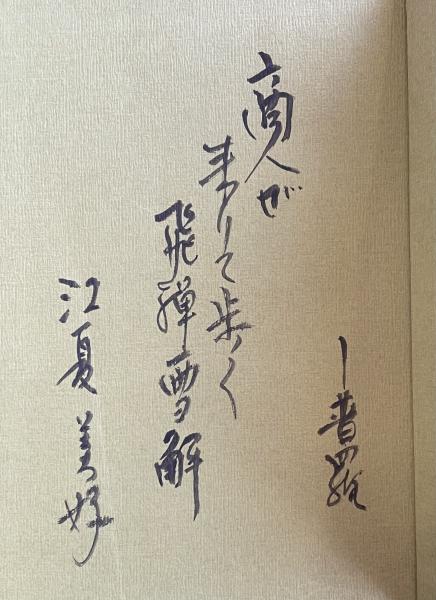 商人が
来りて歩く
飛騨雪解
―普羅
江夏美好